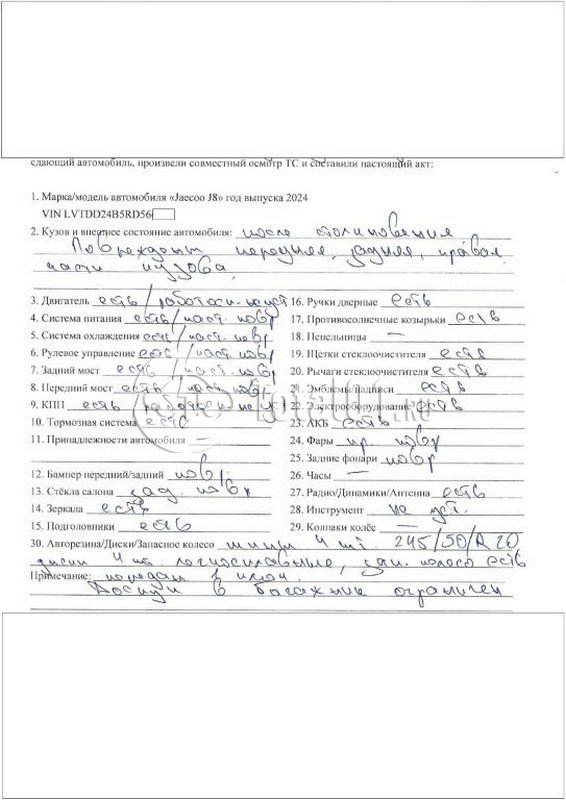 сдающий автомобиль, произвели совместный осмотр ТС и составили настоящий акт:
1. Марка/модель автомобиля «Jaecoo J8» год выпуска 2024
VIN LVTDD24B5RD56
2. Кузов и внешнее состояние автомобиля: после столкновения
Повреждены передняя, задняя, правая
части кузова
3. Двигатель есть / работосп. не уст
4. Система питания есть / част. повр
5. Система охлаждения есть / част. повр
6. Рулевое управление есть / част. повр
7. Задний мост есть / част. повр
8. Передний мост есть / част. повр
9. КПП есть работосп не уст
10. Тормозная система есть
11. Принадлежности автомобиля —
12. Бампер передний/задний повр.
13. Стёкла салона зад. повр
14. Зеркала есть
15. Подголовники есть
16. Ручки дверные есть
17. Противосолнечные козырьки есть
18. Пепельницы —
19. Щетки стеклоочистителя есть
20. Рычаги стеклоочистителя есть
21. Эмблемы/надписи есть
22. Электрооборудование есть
23. АКБ есть
24. Фары пр. повр
25. Задние фонари повр
26. Часы —
27. Радио/Динамики/Антенна есть
28. Инструмент не уст.
29. Колпаки колёс —
30. Авторезина/Диски/Запасное колесо шины 4 шт. 245/50/R20
диски 4 шт легкосплавные, зап. колесо есть
Примечание: передан ключ.
Доступ в багажник ограничен